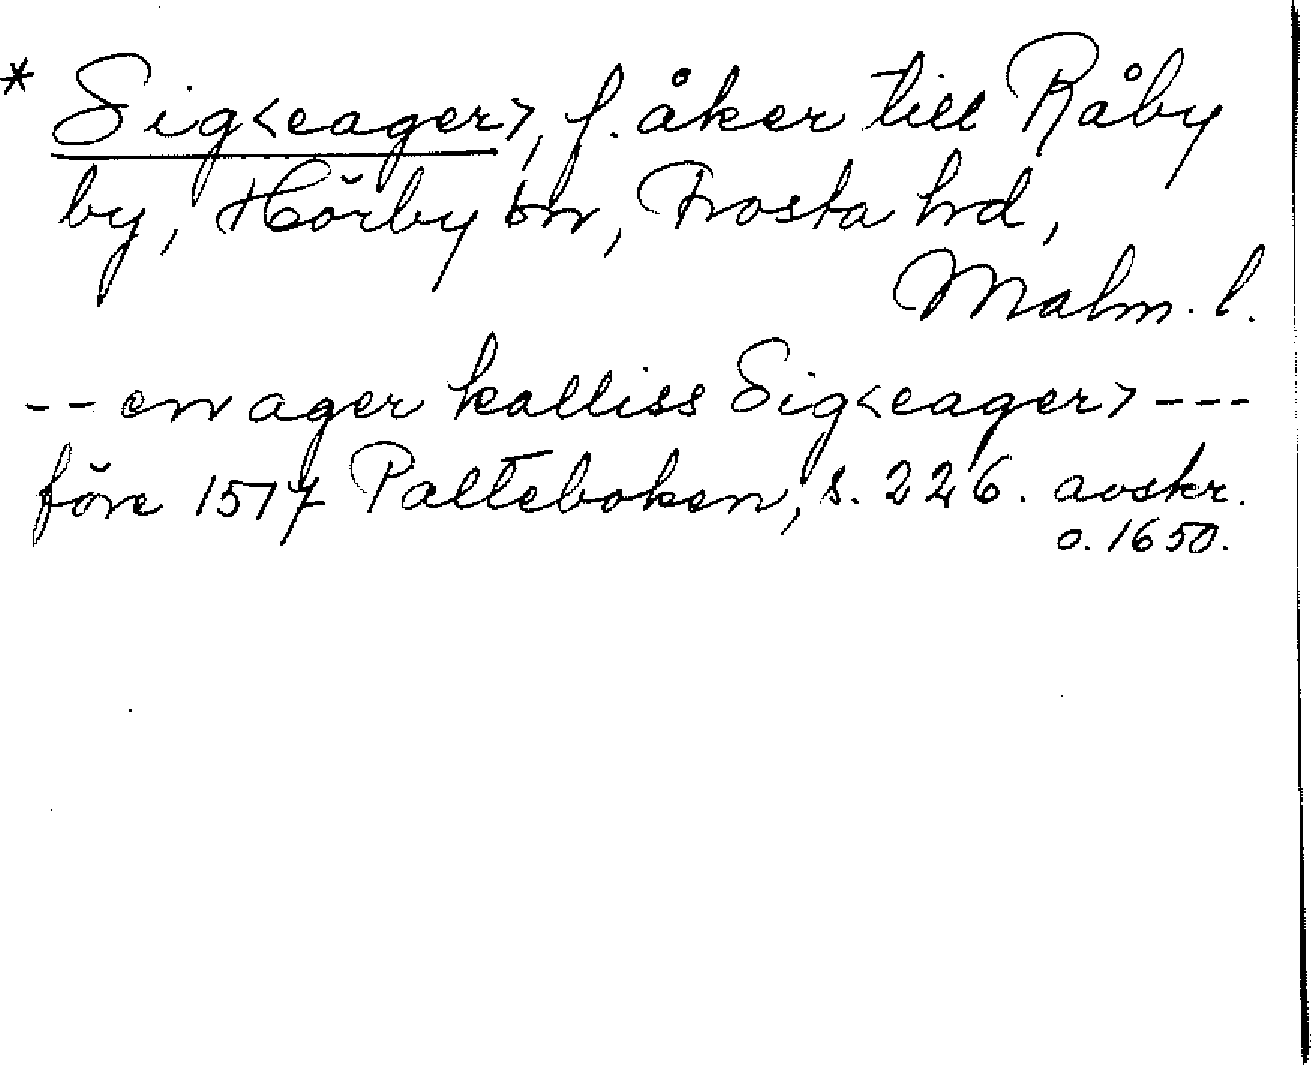 * Sig<eager>, f. åker till Råby
by, Hörby sn, Frosta hd,
Malm. l.
-- en ager kalliss Sig<eager> ---
före 1577 Palteboken, s. 226. avskr.
o. 1650.